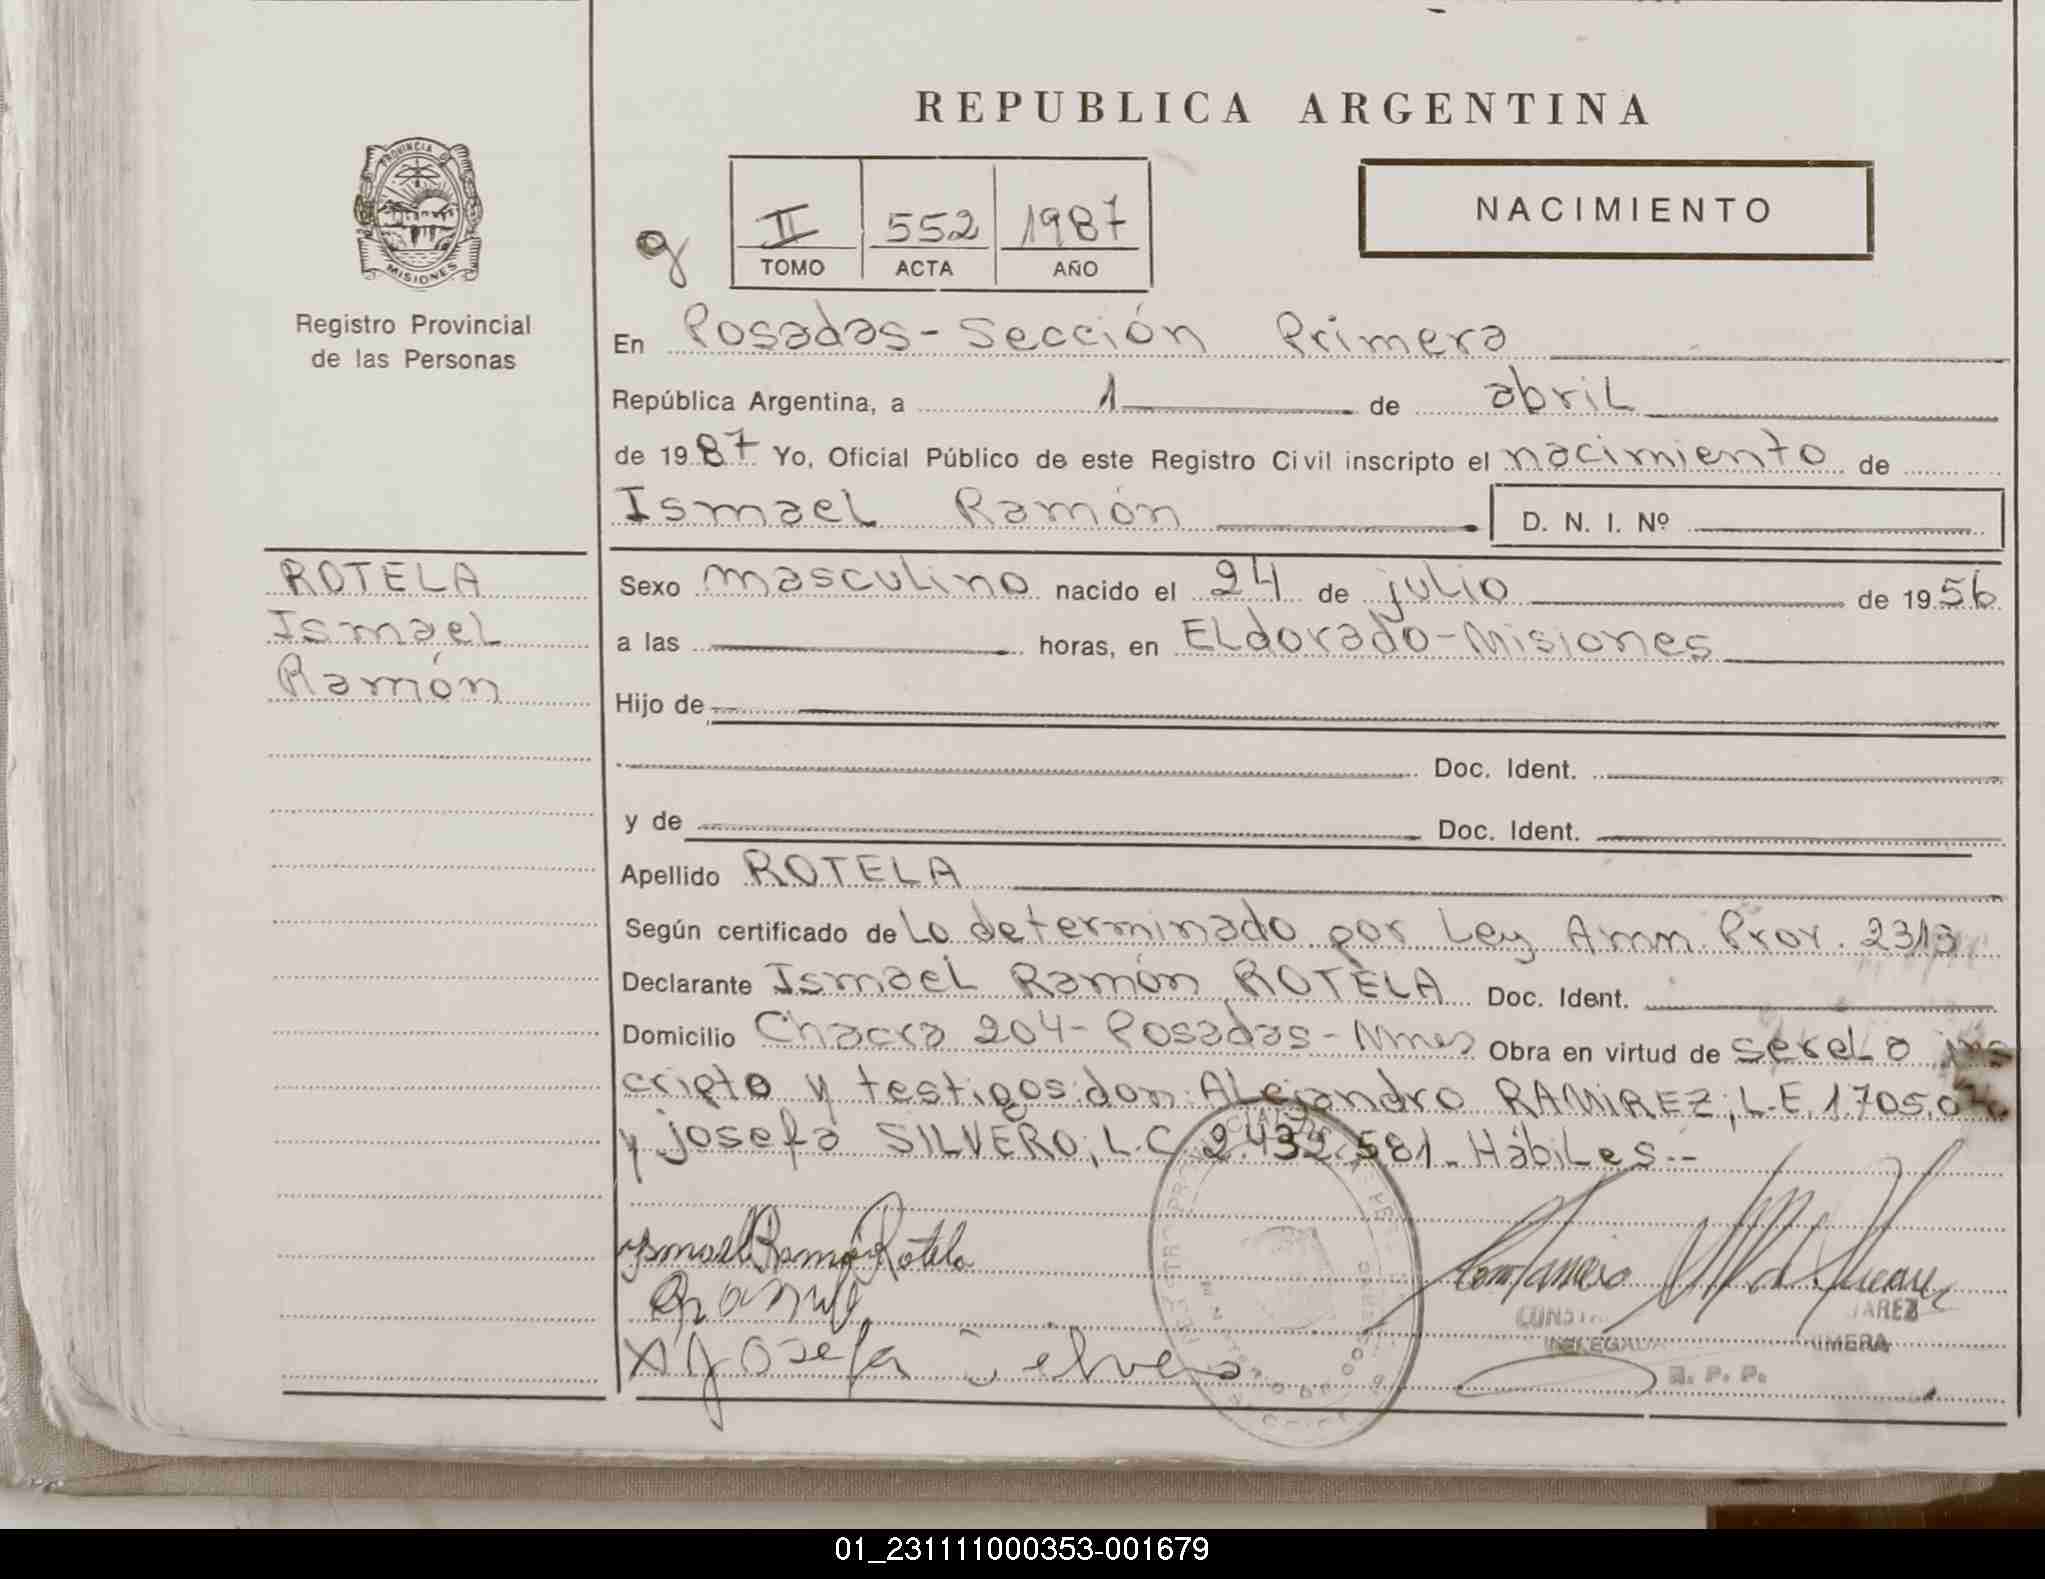 REPUBLICA ARGENTINA
PROVINCIA DE
MISIONES
Registro Provincial
de las Personas
g
II 552 1987
TOMO ACTA AÑO
NACIMIENTO
En Posadas-Sección Primera
República Argentina, a 1 de abril
de 1987 Yo, Oficial Público de este Registro Civil inscripto el nacimiento de
Ismael Ramón D. N. I. Nº
ROTELA
Ismael
Ramón
Sexo masculino nacido el 24 de julio de 1956
a las horas, en Eldorado-Misiones
Hijo de
Doc. Ident.
y de Doc. Ident.
Apellido ROTELA
Según certificado de Lo determinado por Ley Amn. Prov. 2313
Declarante Ismael Ramón ROTELA Doc. Ident.
Domicilio Chacra 204-Posadas-Mnes Obra en virtud de serelo ins
cripto y testigos: don: Alejandro RAMIREZ; L.E. 1705.0
y Josefa SILVERO; L.C. 2.432.581. Hábiles.-
Ismael Ramón Rotela
Josefa Silvero
R. P. P.
01_231111000353-001679